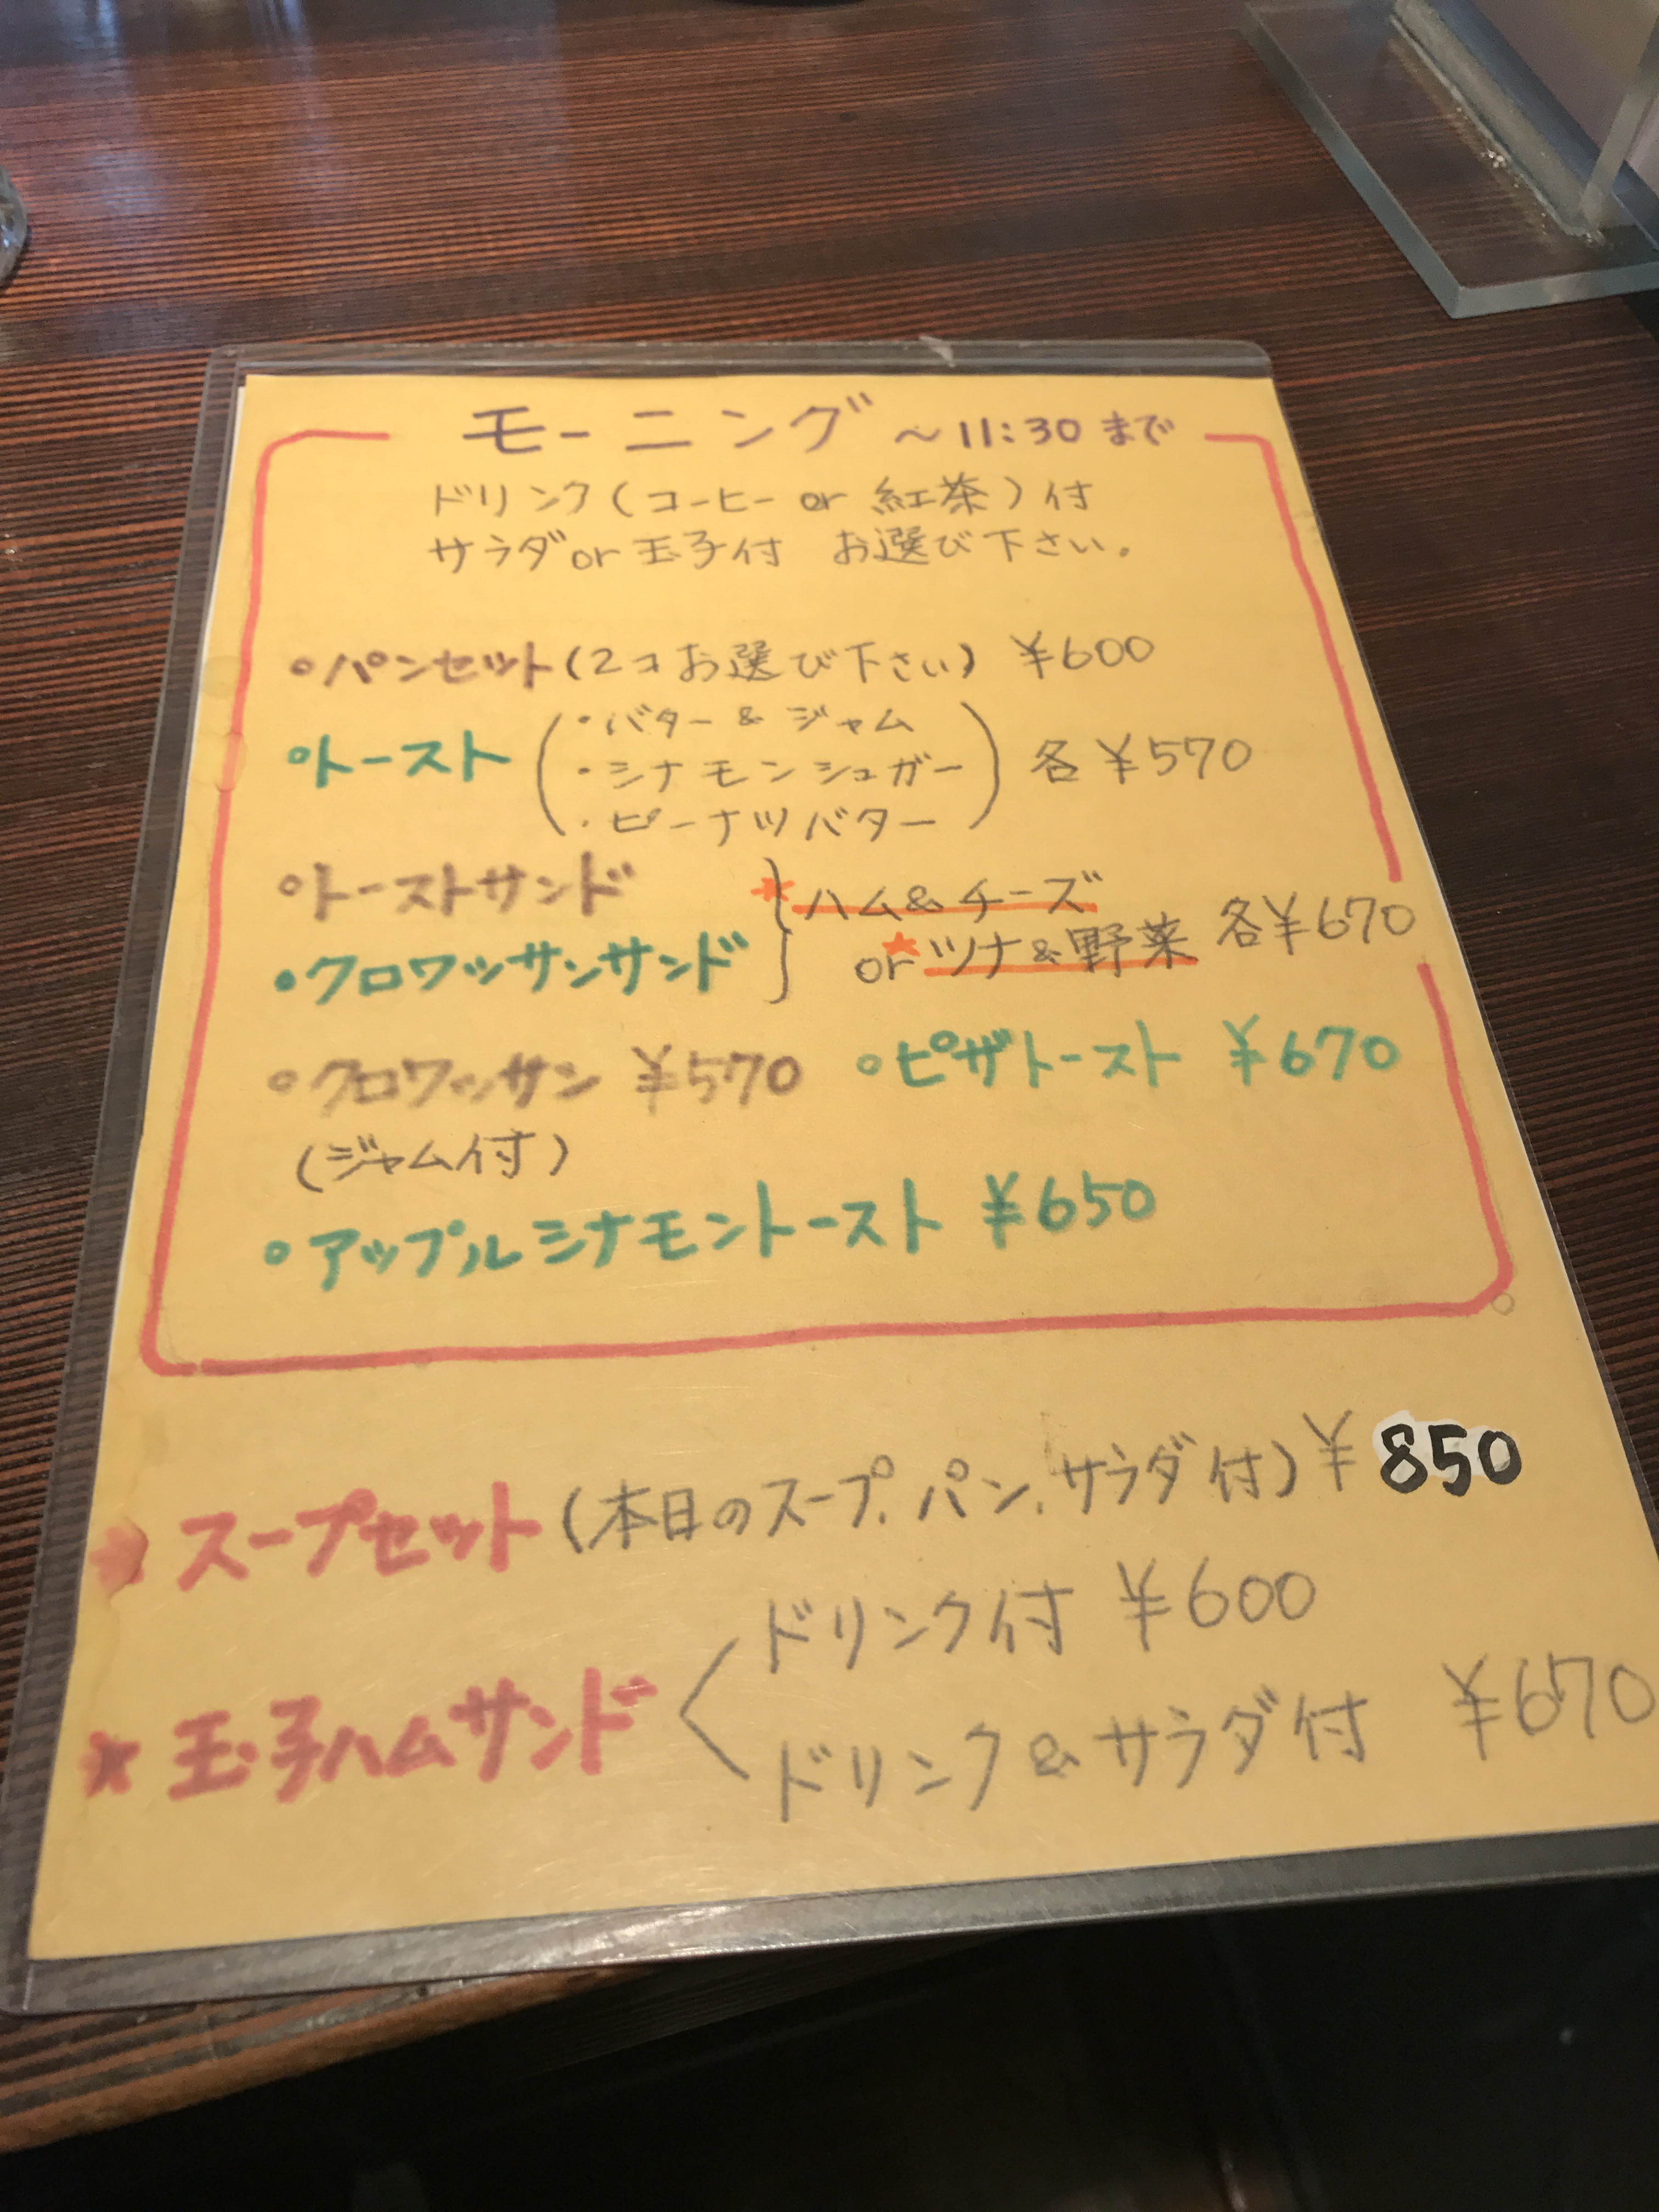 モーニング ～11:30まで
ドリンク(コーヒー or 紅茶)付
サラダor玉子付 お選び下さい。
・パンセット(2コお選び下さい) ¥600
・トースト
・バター & ジャム
・シナモンシュガー
・ピーナツバター
各¥570
・トーストサンド
・クロワッサンサンド
*ハム&チーズ
or*ツナ&野菜 各¥670
・クロワッサン ¥570
(ジャム付)
・ピザトースト ¥670
・アップルシナモントースト ¥650
★スープセット(本日のスープ、パン、サラダ付)¥850
★玉子ハムサンド
ドリンク付 ¥600
ドリンク&サラダ付 ¥670